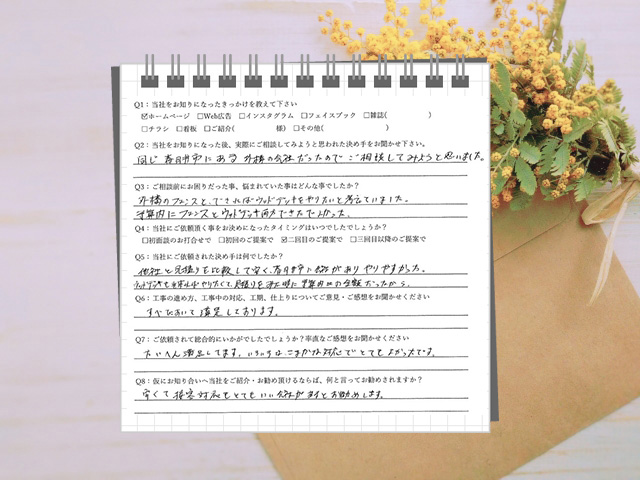 Q1：当社をお知りになったきっかけを教えて下さい
☑ホームページ □Web広告 □インスタグラム □フェイスブック □雑誌( )
□チラシ □看板 □ご紹介( 様) □その他( )
Q2：当社をお知りになった後、実際にご相談してみようと思われた決め手をお聞かせ下さい。
同じ春日井市にある外構の会社だったのでご相談してみようと思いました。
Q3：ご相談前にお困りだった事。悩まれていた事はどんな事でしたか？
外構のフェンスと、できればウッドデッキをやりたいと考えていました。
予算内にフェンスとウッドデッキ両方できたでよかった。
Q4：当社にご依頼頂く事をお決めになったタイミングはいつでしたでしょうか？
□初面談のお打合せで □初回のご提案で ☑二回目のご提案で □三回目以降のご提案で
Q5：当社にご依頼された決め手は何でしたか？
他社と見積りを比較して安く、春日井市に会社がありやりやすかった。
ウッドデッキも出来ればやりたくて、見積りを
予算内の金額だったから。
Q6：工事の進め方、工事中の対応、工期、仕上りについてご意見・ご感想をお聞かせください
すべてにおいて満足しております。
Q7：ご依頼されて総合的にいかがでしたでしょうか？率直なご感想をお聞かせください
たいへん満足してます。いろいろなこまかな対応でとてもよかったです。
Q8：仮にお知り合いへ当社をご紹介・お勧め頂けるならば、何と言ってお勧めされますか？
安くて接客対応もとてもいい会社がヨイとお勧めします。